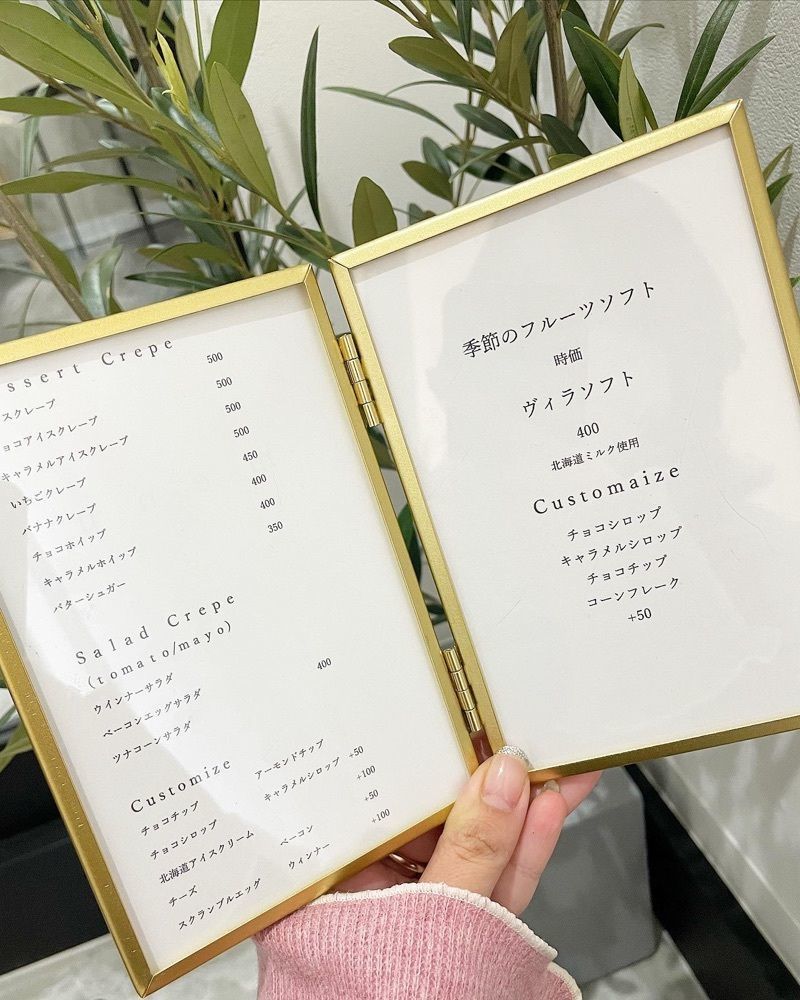 ssert Crepe
スクレープ 500
ョコアイスクレープ 500
キャラメルアイスクレープ 500
いちごクレープ 500
バナナクレープ 450
チョコホイップ 400
キャラメルホイップ 400
バターシュガー 350
Salad Crepe
(tomato/mayo)
ウインナーサラダ 400
ベーコンエッグサラダ
ツナコーンサラダ
Customize
チョコチップ アーモンドチップ
チョコシロップ キャラメルシロップ +50
北海道アイスクリーム +100
チーズ ベーコン +50
スクランブルエッグ ウィンナー +100
季節のフルーツソフト
時価
ヴィラソフト
400
北海道ミルク使用
Customaize
チョコシロップ
キャラメルシロップ
チョコチップ
コーンフレーク
+50